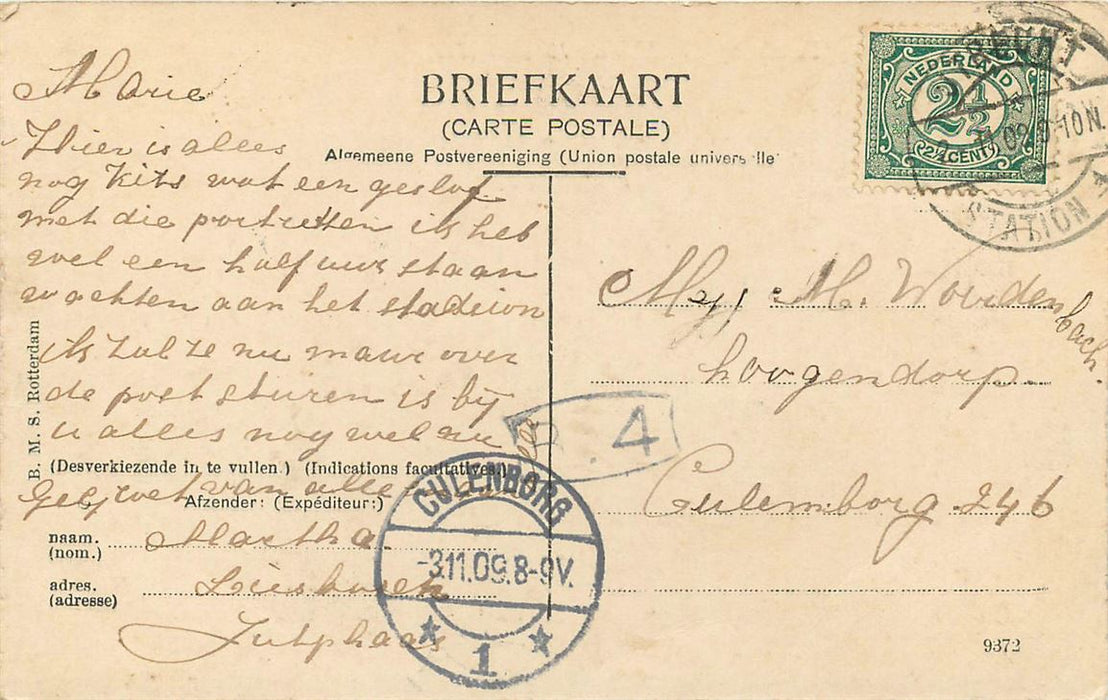 BRIEFKAART
(CARTE POSTALE)
Algemeene Postvereeniging (Union postale universelle
NEDERLAND
2½
2½ CENT
STATION
Marie
Hier is alles
nog kits wat een geslof
met die portretten ik heb
wel een half uur staan
wachten aan het stadeion
ik zal ze nu maar over
de post sturen is bij
u alles nog wel nu
van alle
Martha
Liesbosch
Jutphaas
Mej. M. Woudenbach.
hoogendorp.
Culemborg 246
4
CULENBORG
-3.11.09.8-9V.
1
(Desverkiezende in te vullen.) (Indications facultatives.)
Afzender: (Expéditeur:)
naam.
(nom.)
adres.
(adresse)
B. M. S. Rotterdam
9372